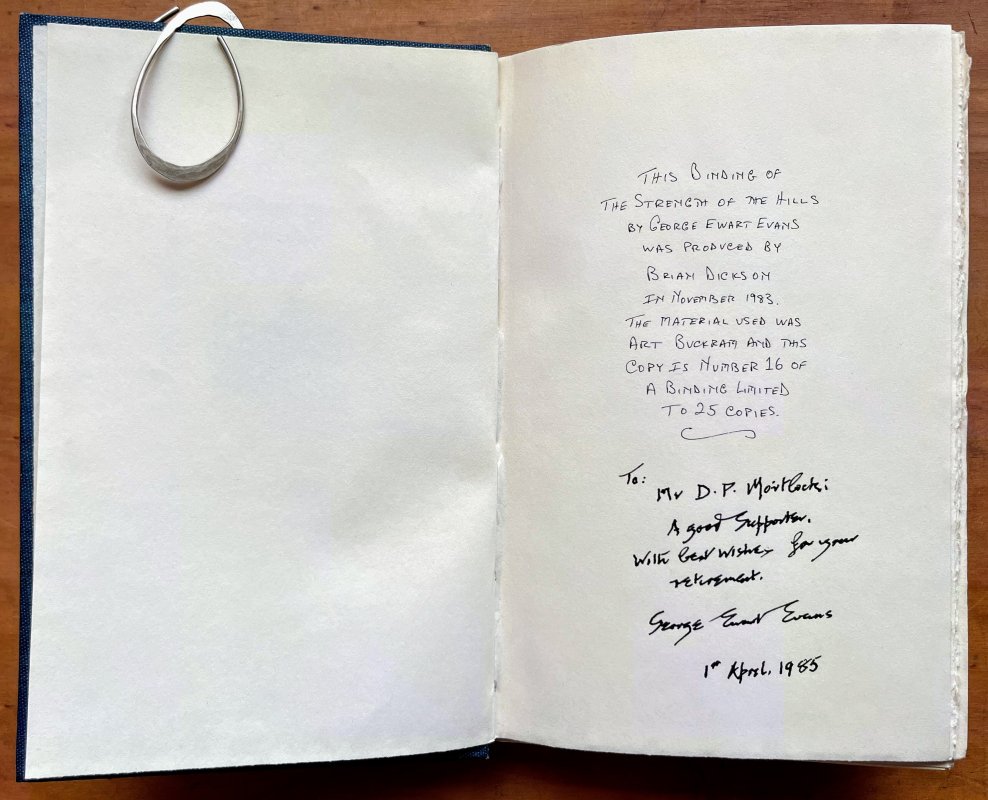 THIS BINDING OF
THE STRENGTH OF THE HILLS
BY GEORGE EWART EVANS
WAS PRODUCED BY
BRIAN DICKSON
IN NOVEMBER 1983.
THE MATERIAL USED WAS
ART BUCKRAM AND THIS
COPY IS NUMBER 16 OF
A BINDING LIMITED
TO 25 COPIES.
To:
Mr D.P. Mortlock:
A good supporter.
With best wishes for your
retirement.
George Ewart Evans
1st April. 1985